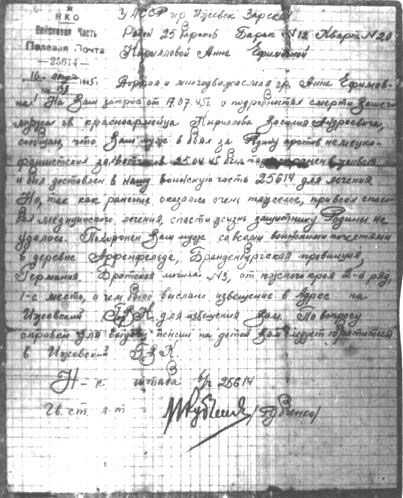 НКО
Войсковая Часть
Полевая Почта
—25614—
16 1945г.
УАССР гор Ижевск Зарека
Район 25 Барак №12 Кварт №20
Кирилловой Анне Ефимовной
Дорогая и многоуважаемая гр. Анна Ефимов-
на! На Ваш запрос от 19.07.45г. о подробностях смерти Вашего
мужа гв. красноармейца Кириллова Василия Андреевича,
сообщаю, что Ваш муж в боях за Родину против немецко-
фашистских 25.04.45 был ранен в живот
и был доставлен в нашу воинскую часть 25614 для лечения.
Но, так как ранение оказалось очень тяжелое, при всех спосо-
бах медицинского лечения, спасти жизнь защитнику Родины не
удалось. Похоронен Ваш муж со всеми воинскими почестями
в деревне Арфенсфельде, Бранденбургская провинция,
Германия. Братская могила №3, от южного края 2-й ряд,
1-е место, о чем было выслано извещение в адрес на
Ижевский ГВК для извещения Вам. По вопросу
справки для выдачи пенсии на детей Вам следует обратиться
в Ижевский ГВК.
Н-к штаба в/ч 25614
Гв. ст. л-т /Рубченко/